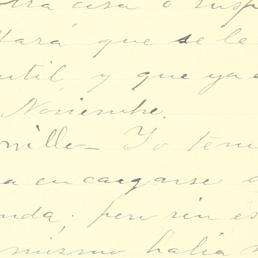 tra casa o susp
tará que se le
útil, y que ya e
Noviembre.
rville — Yo tení
a encargarse d
nda; pero sin es
mismo había